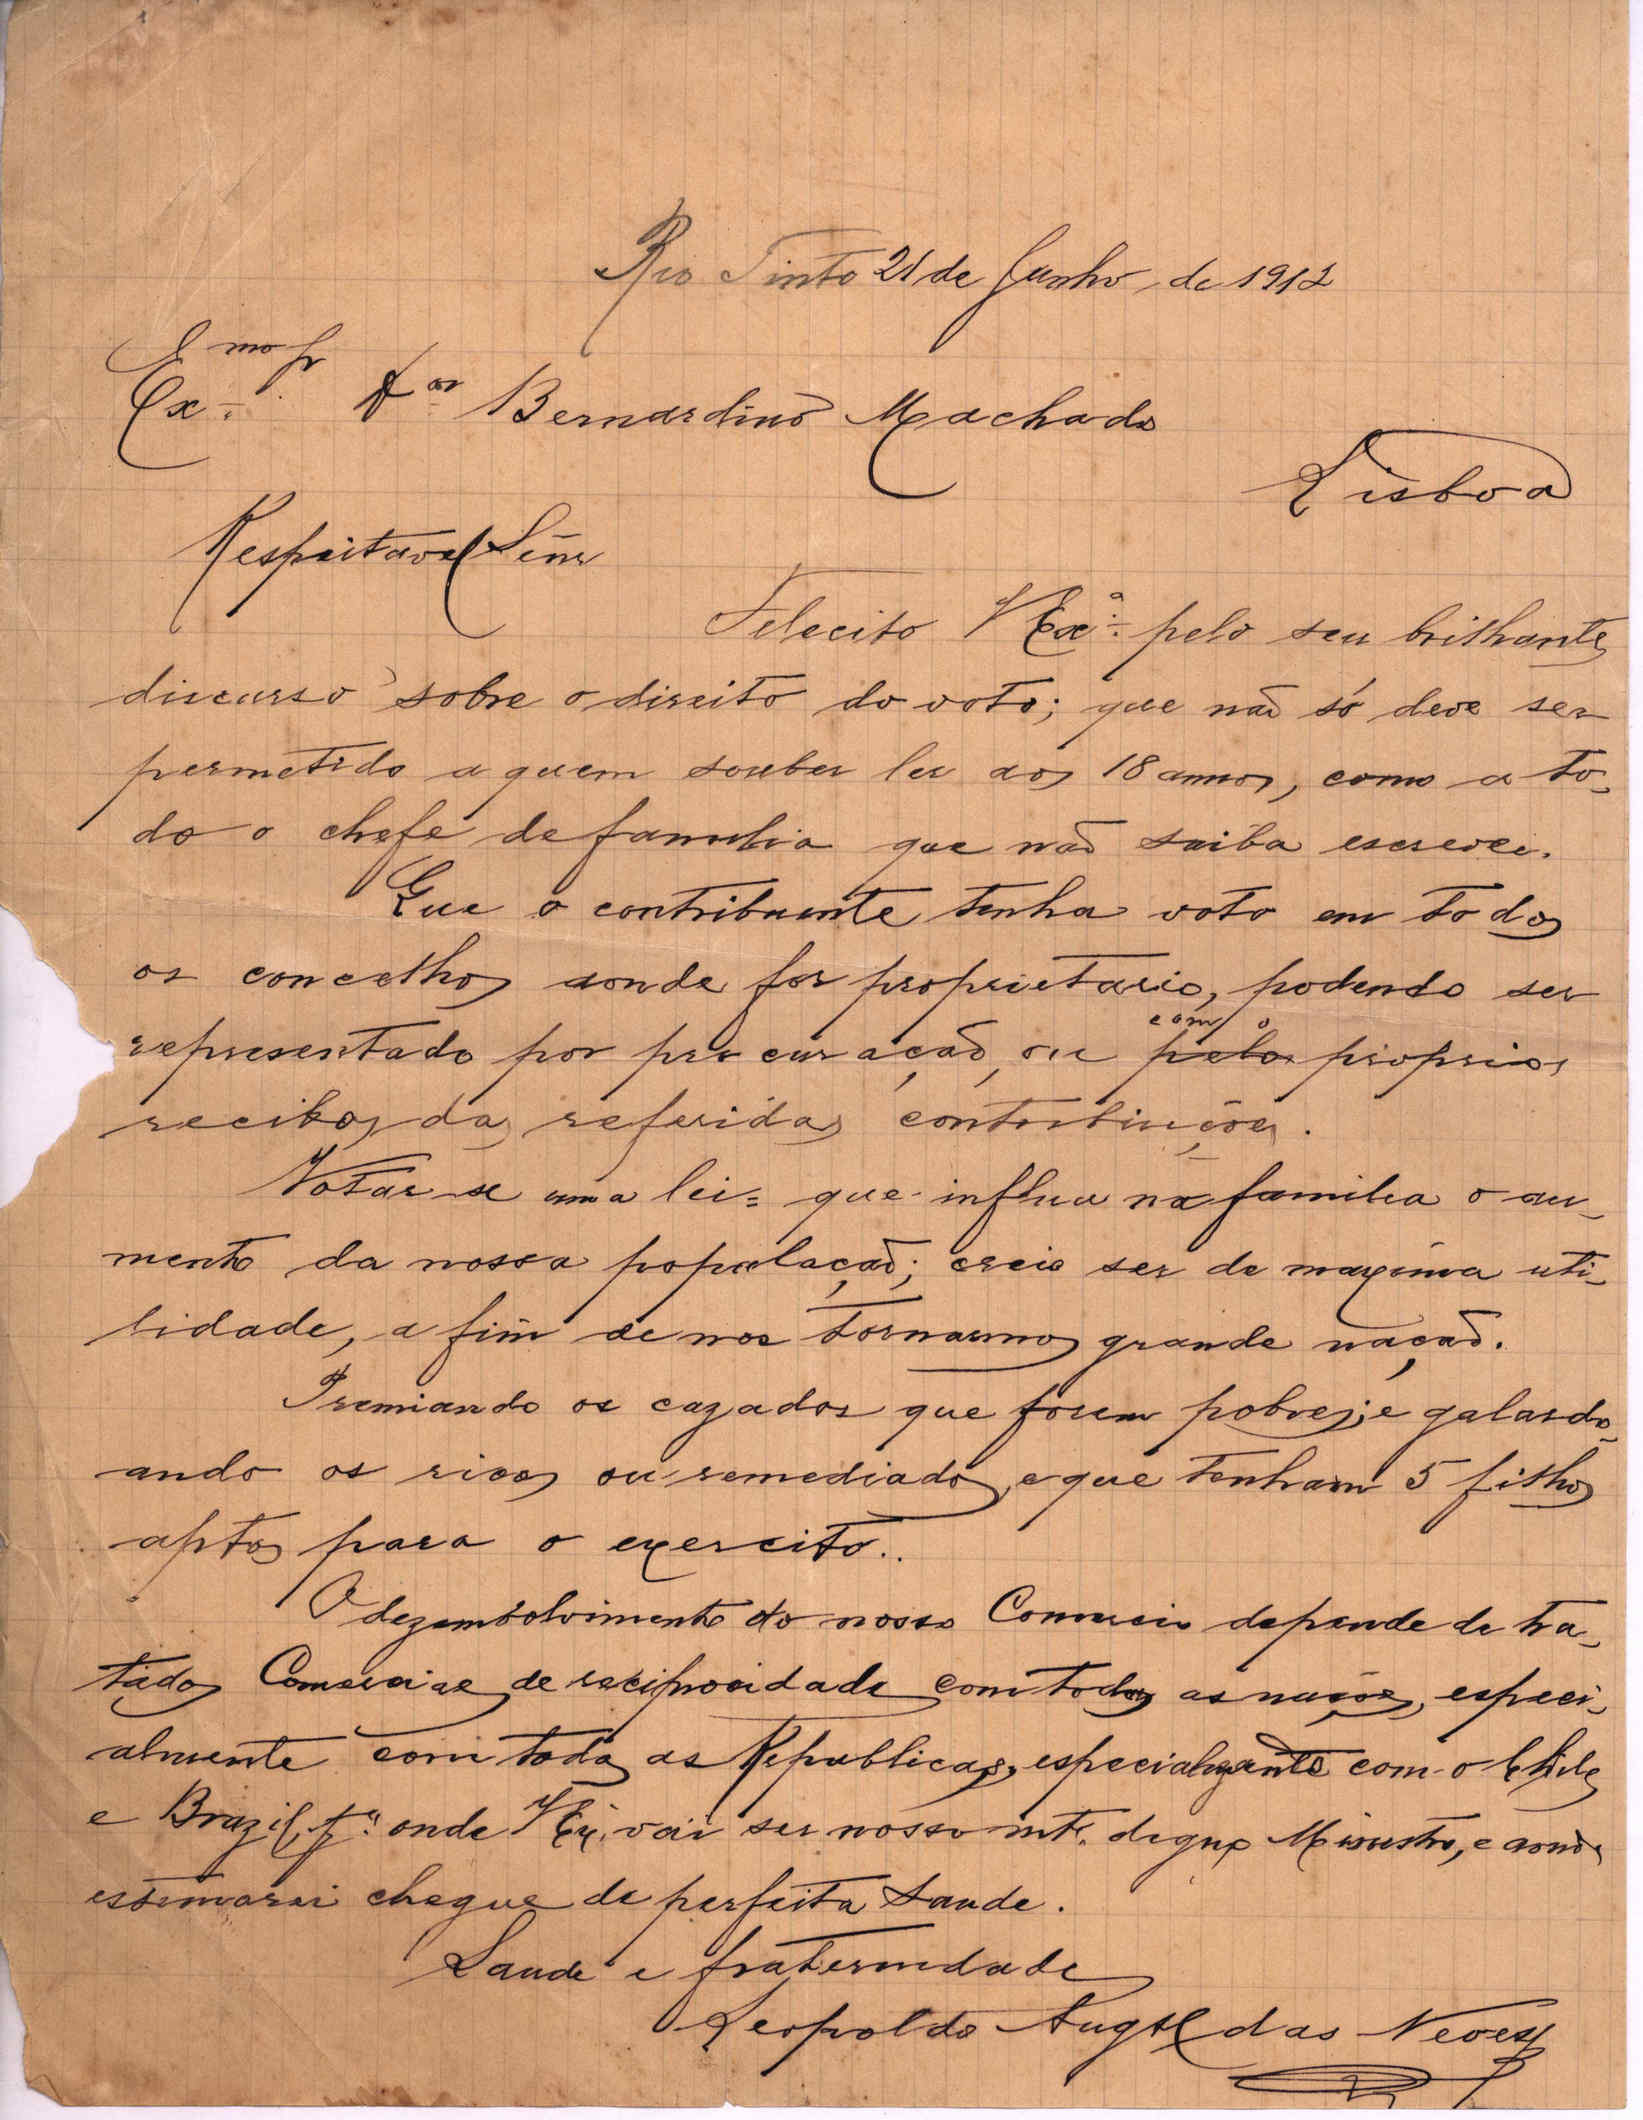 Rio Tinto 21 de Junho de 1912
Exmo Sr Dor Bernardino Machado
Lisboa
Respeitavel Señr
Felecito V Exa. pelo seu brilhante
discurso sobre o direito do voto; que não só deve ser
permetido a quem souber ler aos 18 annos, como a to-
do o chefe de familia que não saiba escrever.
Que o contribuente tenha voto em todos
os concelhos aonde for proprietario, podendo ser
representado por procuração, ou pelos com os proprios
recibos das referidas contribuições.
Votar se uma lei= que influa na familia o au-
mento da nossa população; creio ser de maxima uti-
lidade, a fim de nos tornarmos grande nação.
Premiando os cazados que forem pobres; e galardo-
ando os ricos ou remediados, e que tenham 5 filhos
aptos para o exercito..
O dezembolvimento do nosso Comercio depende de tra-
tados Comerciaes de reciprocidade com todas as nações, especi-
almente com todas as Republicas, especialmente com o Chile
e Brazil, pa. onde V Ex. vai ser nosso mto. digno Ministro, e aonde
estimarei chegue de perfeita saude.
Saude e fraternidade
Leopoldo Augto das Neves